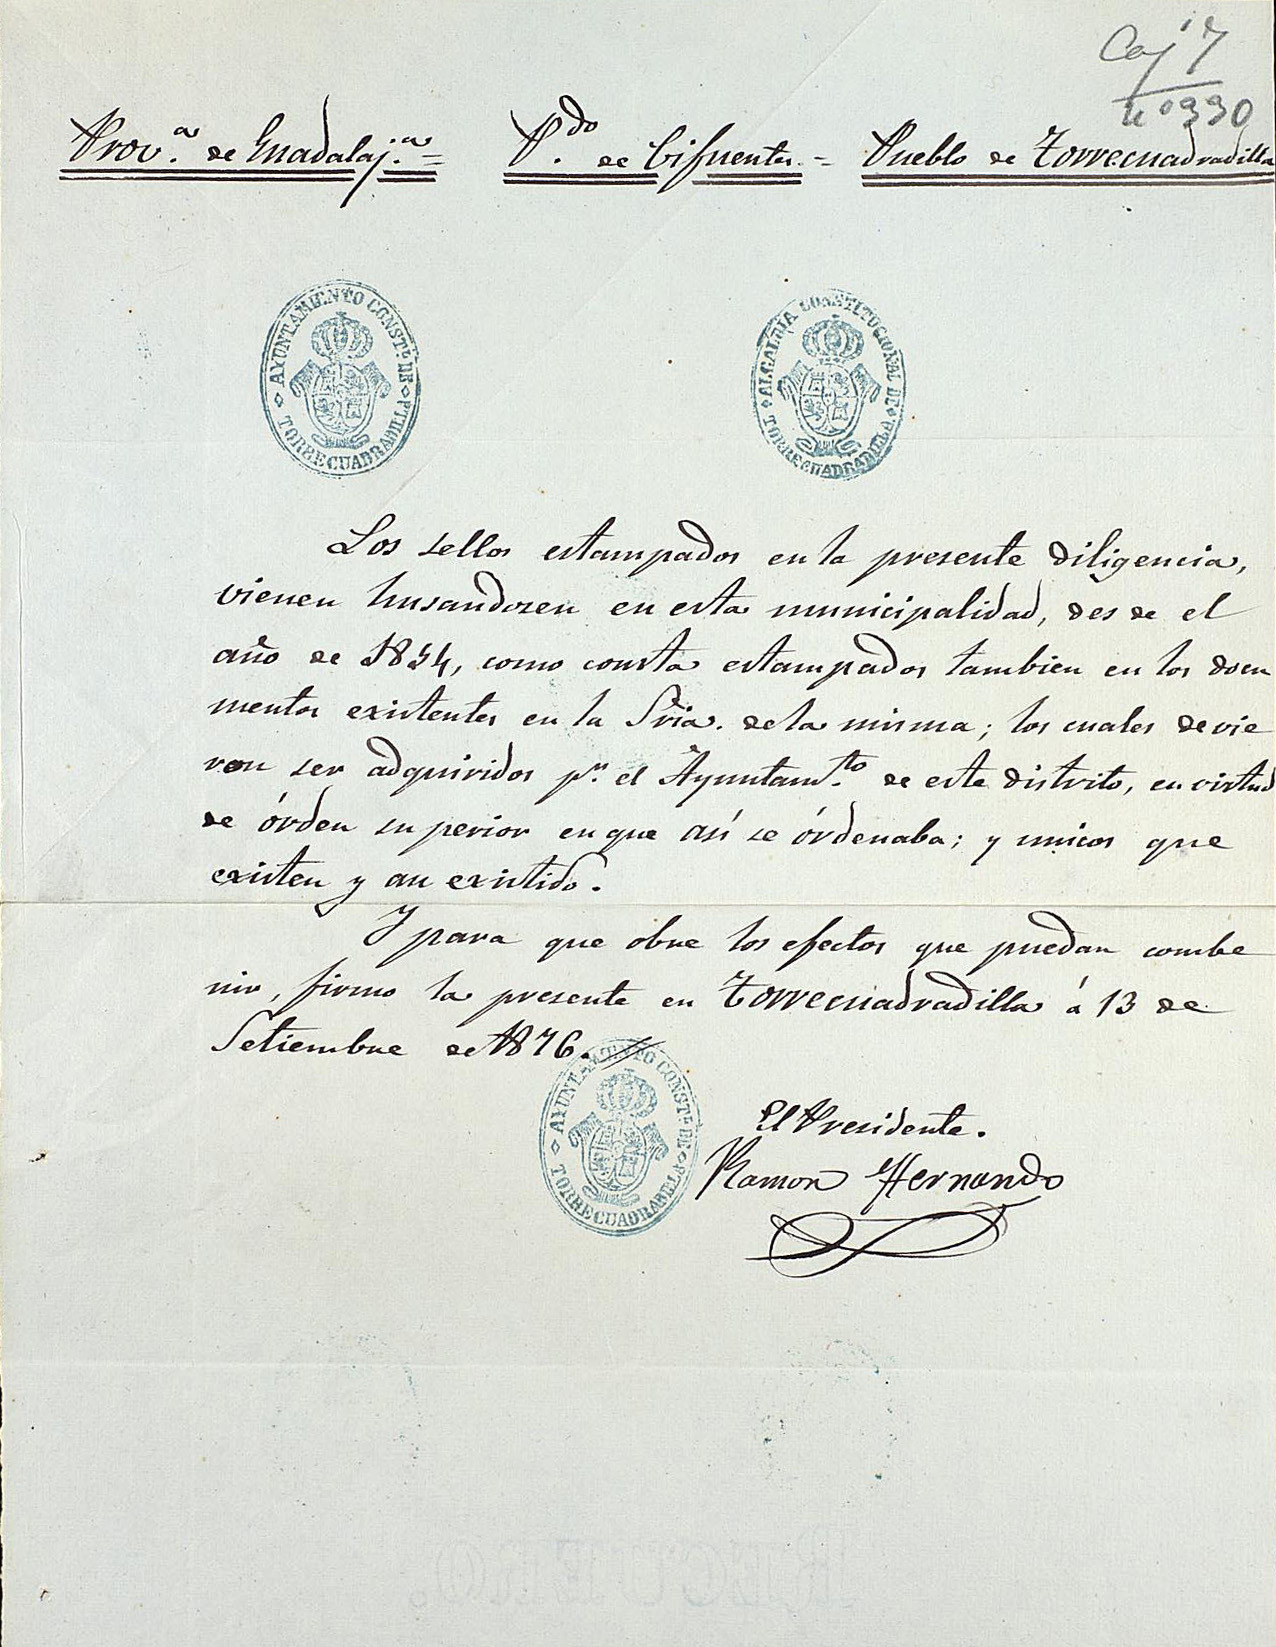 Caj 7
nº 330
Prov.ª de Guadalaj.ª = P.do de Cifuentes = Pueblo de Torrecuadradilla
AYUNTAMIENTO CONST.L DE TORRECUADRADILL.A
ALCALDIA CONSTITUCIONAL DE TORRECUADRADILL.A
Los sellos estampados en la presente diligencia,
vienen husandosen en esta municipalidad, desde el
año de 1854, como consta estampados tambien en los docu
mentos existentes en la Sria. de la misma; los cuales devie
ron ser adquiridos p.r el Ayuntam.to de este distrito, en virtud
de órden superior en que así se órdenaba; y unicos que
existen y an existido.
Y para que obre los efectos que puedan combe
nir, firmo la presente en Torrecuadradilla á 13 de
Setiembre de 1876.
AYUNTAMIENTO CONST.L DE TORRECUADRADILL.A
El Presidente.
Ramon Hernando
RECUERO.